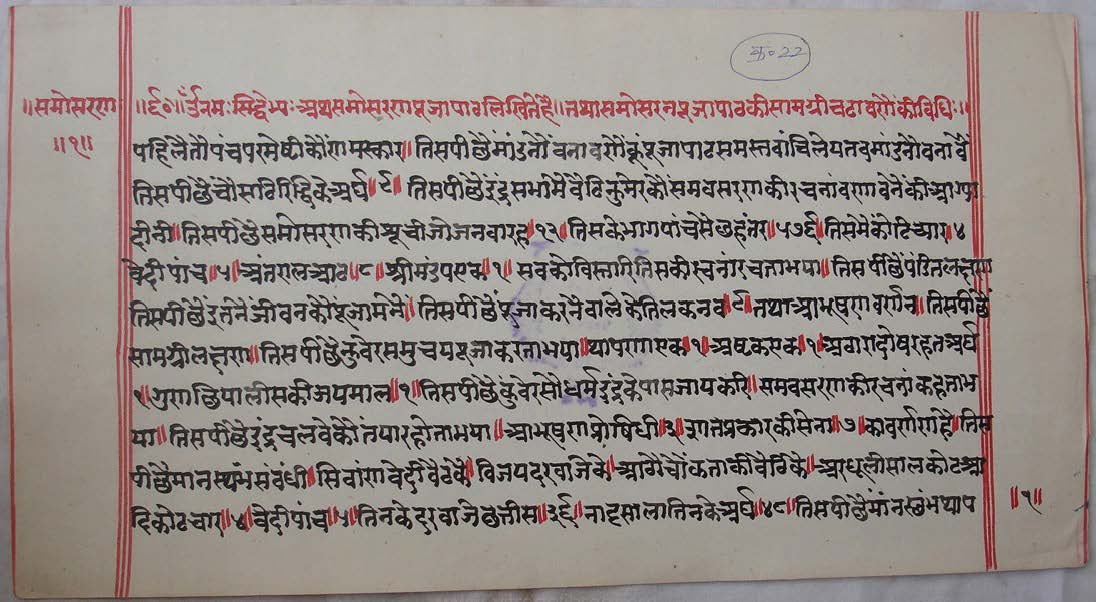 क॰ 22
॥समोसरण ॥१॥
॥६०॥ उँनमः सिद्धेभ्यः अथ समोसरणपूजापाठलिखितेहै॥ तथा समोसरनपूजापाठकीसामग्रीचढावणेंकीविधिः॥
पहिलैतौपंचपरमेष्टीकौंणमस्कार॥ तिसपीछैमांडनौंवनावणेंकूंपूजापाठसमस्तवांचिलेयतवमांडनौवनावैं
तिसपीछैचौसठिरिद्धिकेअर्घ॥९॥ तिसपीछैइंद्रसभामैवैठिकुमेरकौंसमवसरणकीरचनांवणावनेंकीआग्या
दीनी॥ तिसपीछैसमोसरणकीसूचीजोजनवारह॥१२॥ तिसकेभागपांचसैछहंतर॥५७६॥ तिसमेंकोटिच्यार॥४
वेदीपांच॥५॥ अंतरालआठ॥८॥ श्रीमंडपएक॥१॥ सवकोविस्तारितिसकीरचनांरचताभया॥ तिसपीछैपंडितलक्षण
तिसपीछैइतनेंजीवनकौंपूजामेंनें॥ तिसपीछैपूजाकरनेंवालेकेतिलकनव॥९॥ तथाआभूषणवर्णन॥ तिसपीछै
सामग्रीलक्षण॥ तिसपीछैकुवेरसमुचयपूजाकरताभया॥ थापणाएक॥१॥ अष्टकएक॥१॥ अठारादोषरहतअर्घ
१॥ गुणछियालीसकीजयमाल॥१॥ तिसपीछैकुंवेरसोधर्मइंद्रकेपासजायकरि॥ समवसरणकीरचनांकहताभ
या॥ तिसपीछैइंद्रचलवेकौंतयारहोताभया॥ आभूषण षोषिधी॥३॥ सातप्रकारकीसेना॥७॥ कावर्णणहै॥ तिस
पीछैमानस्थंभसंवंधी॥ सिवांणवेदीवैठकें॥ विजयदरवाजेके॥ आगैचौंकताकीवेदिके॥ आधूलीसालकोटआ
दिकोटचार॥४॥ वेदीपांच॥५॥ तिनकेदरवाजेछत्तीस॥३६॥ नाट्सालातिनकेअर्घ॥४८॥ तिसपीछैमांनस्तंभथाप
॥१॥